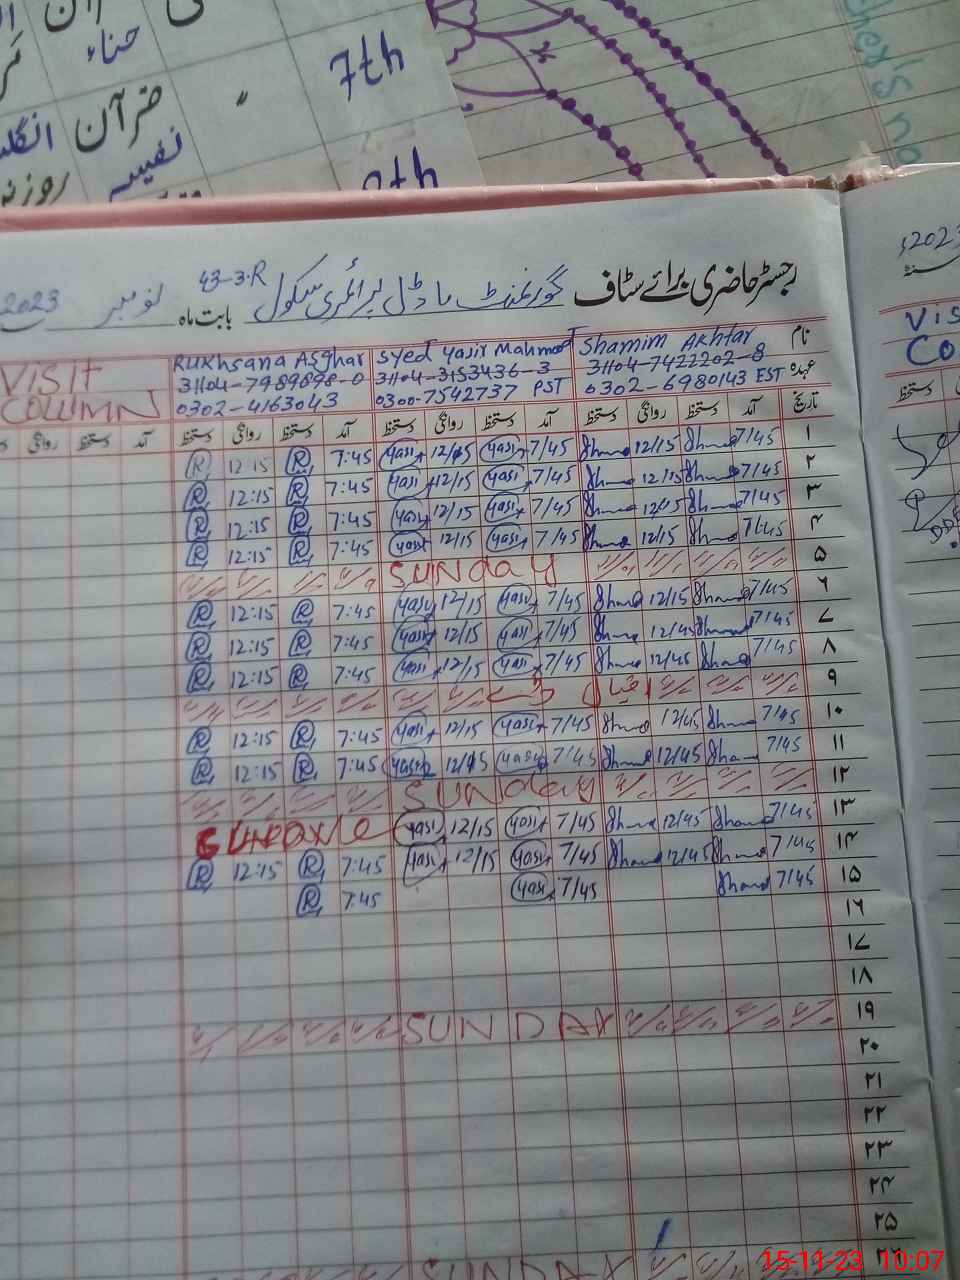 7th
حناء
قرآن
نفیسہ
8th
رجسٹر حاضری برائے سٹاف گورنمنٹ ماڈل پرائمری سکول 43-3-R بابت ماہ نومبر 2023
2023
نام Shamim Akhtar Syed Yasir Mahmood Rukhsana Asghar VISIT
31104-7422202-8 31104-3153436-3 31104-7989898-0 COLUMN
عہدہ 0302-6980143 EST 0300-7542737 PST 0302-4163043
تاریخ آمد دستخط روانگی دستخط آمد دستخط روانگی دستخط آمد دستخط روانگی دستخط آمد دستخط روانگی
۱ 7/45 Sham 12/15 Sham 7/45 Yasir 12/15 Yasir 7:45 R 12:15 R
۲ 7/45 Sham 12/15 Sham 7/45 Yasir 12/15 Yasir 7:45 R 12:15 R
۳ 7/45 Sham 12/15 Sham 7/45 Yasir 12/15 Yasir 7:45 R 12:15 R
۴ 7/45 Sham 12/15 Sham 7/45 Yasir 12/15 Yasir 7:45 R 12:15 R
۵ SUNday
۶ 7/45 Sham 12/15 Sham 7/45 Yasir 12/15 Yasir 7:45 R 12:15 R
۷ 7/45 Sham 12/45 Sham 7/45 Yasir 12/15 Yasir 7:45 R 12:15 R
۸ 7/45 Sham 12/45 Sham 7/45 Yasir 12/15 Yasir 7:45 R 12:15 R
۹ اقبال ڈے
۱۰ 7/45 Sham 12/45 Sham 7/45 Yasir 12/15 Yasir 7:45 R 12:15 R
۱۱ 7/45 Sham 12/45 Sham 7/45 Yasir 12/15 Yasir 7:45 R 12:15 R
۱۲ SUNday
۱۳ 7/45 Sham 12/45 Sham 7/45 Yasir 12/15 Yasir
۱۴ 7/45 Sham 12/45 Sham 7/45 Yasir 12/15 Yasir 7:45 R 12:15 R
۱۵ 7/45 Sham 7/45 Yasir 7:45 R
۱۶
۱۷
۱۸
۱۹ SUNDAY
۲۰
۲۱
۲۲
۲۳
۲۴
۲۵
۲۶ SUNDAY
15-11-23 10:07